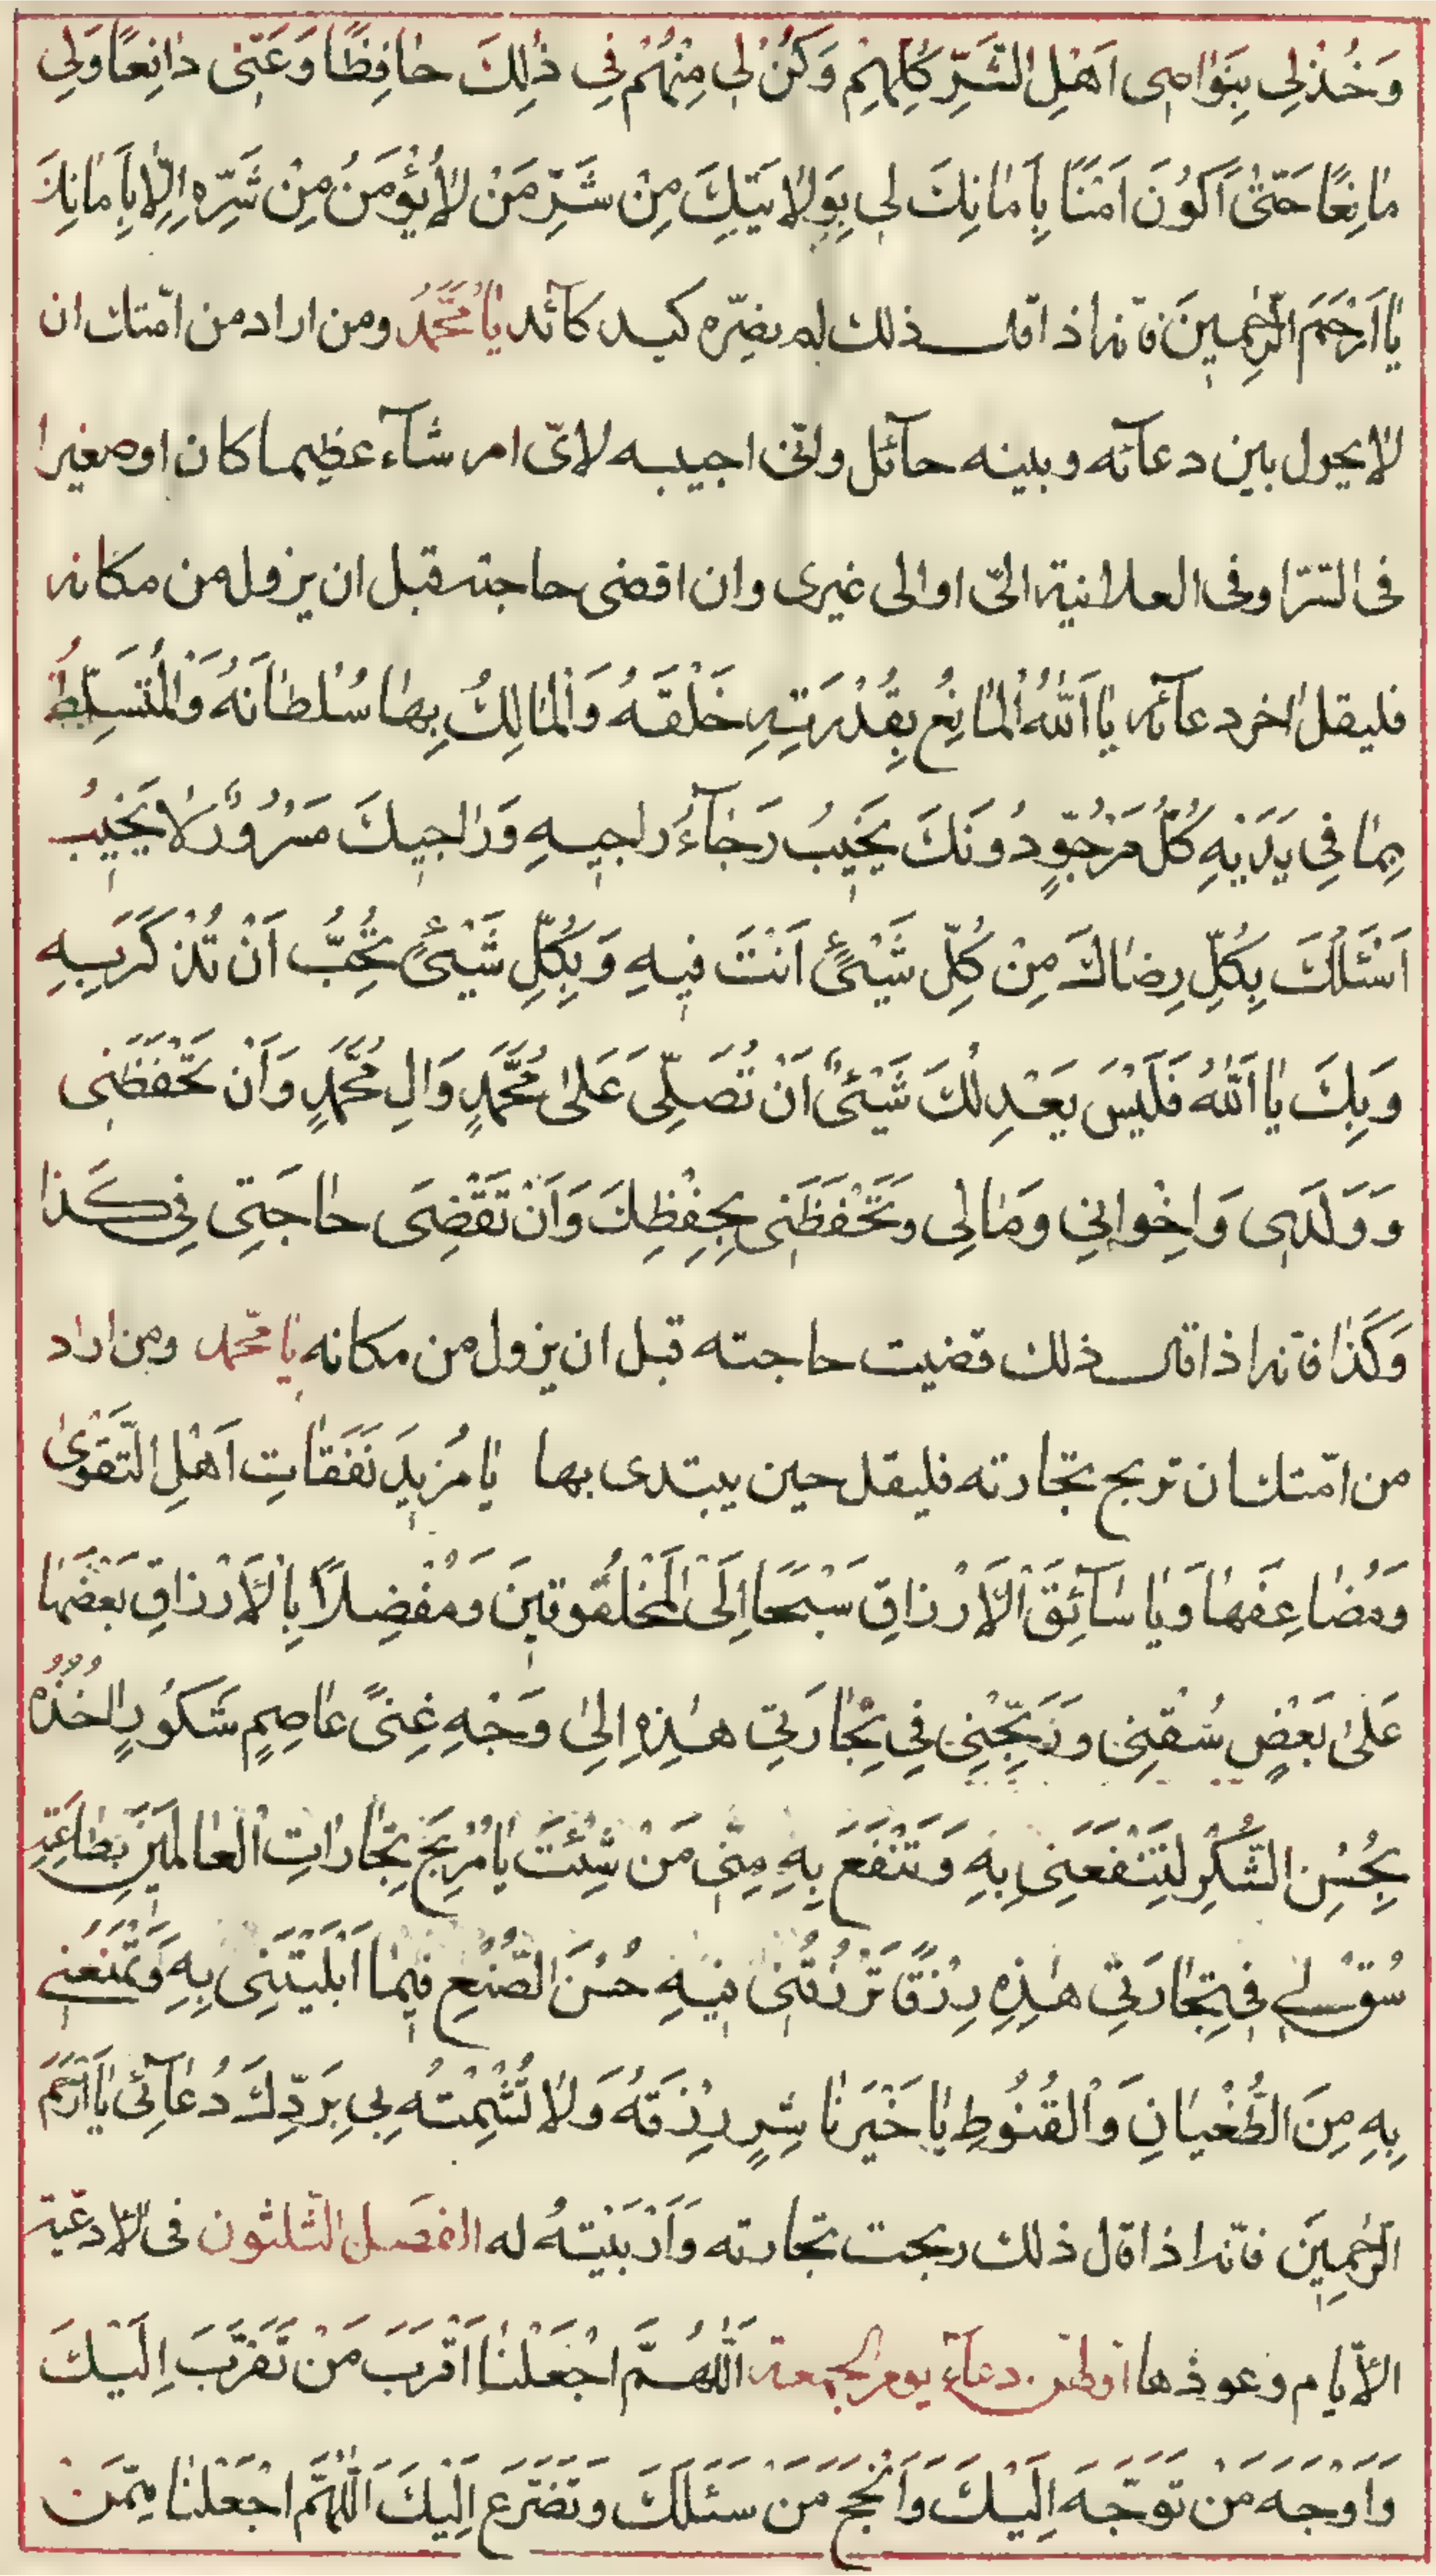 وَخُذْ لِي بِنَوَاصِى اَهْلِ الشَّرِّ كُلِّهِمْ وَكُنْ لِي مِنْهُمْ فِي ذٰلِكَ حٰافِظًا وَعَنّى دٰافِعًا وَلِي
مٰانِعًا حَتّىٰ اَكُونَ اٰمِنًا بِاَمٰانِكَ لِي بِوِلاٰيَتِكَ مِنْ شَرِّ مَنْ لاٰ يُؤْمَنُ مِنْ شَرِّهِ اِلاّٰ بِاَمٰانِكَ
يٰا اَرْحَمَ الرّٰحِمِينَ فانه اذا قال ذلك لم يضرّه كيد كآئد يٰا مُحَمَّدُ ومن اراد من امّتك ان
لا يحول بين دعآئه وبينه حآئل وانّى اجيبه لاىّ امر شآء عظيما كان او صغيرا
فى السّرّ او فى العلانية الىّ او الى غيرى وان اقضى حاجته قبل ان يزول من مكانه
فليقل اخر دعآئه يٰا اَللّٰهُ الْمٰانِعُ بِقُدْرَتِهِ خَلْقَهُ وَالْمٰالِكُ بِهٰا سُلْطٰانَهُ وَالْمُتَسَلِّطُ
بِمٰا فِي يَدَيْهِ كُلُّ مَرْجُوٍّ دُونَكَ يَخِيبُ رَجٰآءُ رٰاجِيهِ وَرٰاجِيكَ مَسْرُورٌ لاٰ يَخِيبُ
اَسْئَلُكَ بِكُلِّ رِضٰاكَ مِنْ كُلِّ شَيْئٍ اَنْتَ فِيهِ وَبِكُلِّ شَيْئٍ تُحِبُّ اَنْ تُذْكَرَ بِهِ
وَبِكَ يٰا اَللّٰهُ فَلَيْسَ يَعْدِلُكَ شَيْئٌ اَنْ تُصَلِّىَ عَلىٰ مُحَمَّدٍ وَاٰلِ مُحَمَّدٍ وَاَنْ تَحْفَظَنِى
وَوَلَدِى وَاِخْوٰانِي وَمٰالِى وَتَحْفَظَنِى بِحِفْظِكَ وَاَنْ تَقْضِىَ حٰاجَتِى فِي كَذٰا
وَكَذٰا فانه اذا قال ذلك قضيت حاجته قبل ان يزول من مكانه يٰا محمّد ومن اراد
من امّتك ان تربح تجارته فليقل حين يبتدى بها يٰا مُرْبِىَ نَفَقٰاتِ اَهْلِ التَّقْوىٰ
وَمُضٰاعِفَهٰا وَيٰا سٰآئِقَ الْاَرْزٰاقِ سَحًّا اِلَى الْمَخْلُوقِينَ وَمُفَضِّلاً بِالْاَرْزٰاقِ بَعْضَهٰا
عَلىٰ بَعْضٍ سُقْنِى وَوَجِّهْنِى فِي تِجٰارَتِي هٰذِهِ اِلىٰ وَجْهِ غِنىً عٰاصِمٍ شَكُورٍ اٰخُذُهُ
بِحُسْنِ الشُّكْرِ لِتَنْفَعَنِى بِهِ وَتَنْفَعَ بِهِ مِنّى مَنْ شِئْتَ يٰا مُرْبِحَ تِجٰارٰاتِ الْعٰالَمِينَ بِطٰاعَتِهِ
سُقْ لِي فِي تِجٰارَتِي هٰذِهِ رِزْقًا تَرْزُقُنِى فِيهِ حُسْنَ الصُّنْعِ فِيمٰا اَبْلَيْتَنِى بِهِ وَتَمْنَعُنِي
بِهِ مِنَ الطُّغْيٰانِ وَالْقُنُوطِ يٰا خَيْرَ نٰاشِرٍ رِزْقَهُ وَلاٰ تُشْمِتْ بِي بِرَدِّكَ دُعٰآئِى يٰا اَرْحَمَ
الرّٰحِمِينَ فانّه اذا قال ذلك ربحت تجارته وَاَرْبَيْتهُ له الفصل الثّلثون فى الأدعية
الأيّام وعوذها دعآء يوم الجمعة اَللّٰهُمَّ اجْعَلْنٰا اَقْرَبَ مَنْ تَقَرَّبَ اِلَيْكَ
وَاَوْجَهَ مَنْ تَوَجَّهَ اِلَيْكَ وَاَنْجَحَ مَنْ سَئَلَكَ وَتَضَرَّعَ اِلَيْكَ اَللّٰهُمَّ اجْعَلْنٰا مِمَّنْ